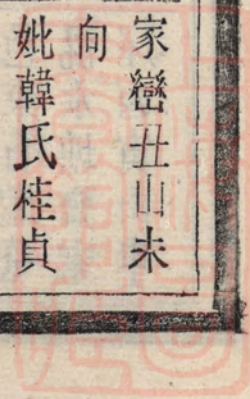 家巒丑山未
向
妣韓氏桂貞